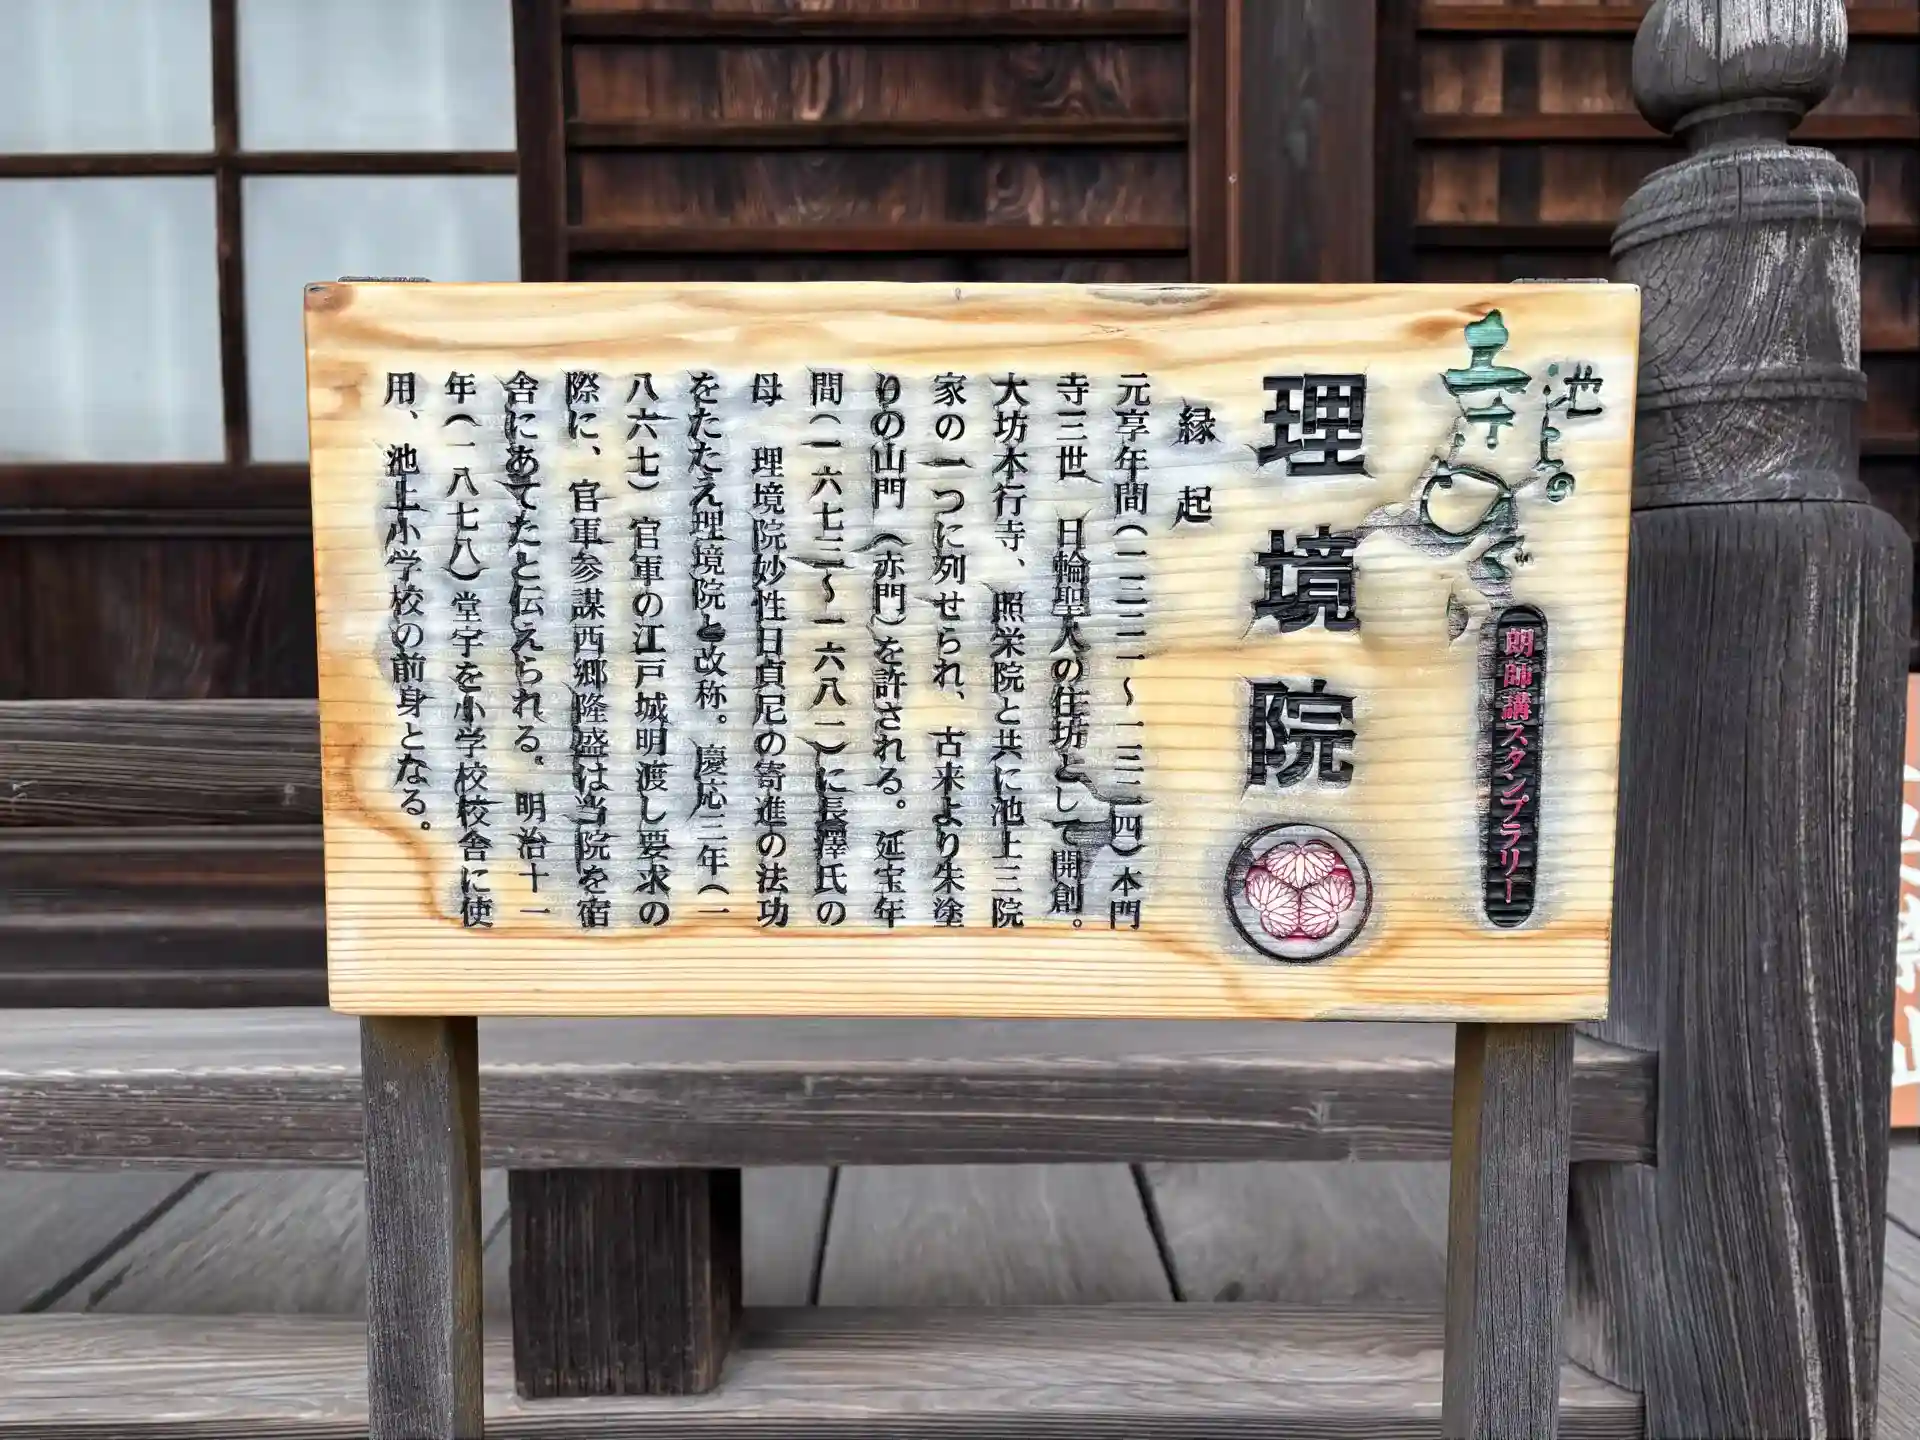 池上の
寺めぐり
朗師講スタンプラリー
理境院
縁起
元享年間(一三二一～一三二四)本門
寺三世 日輪聖人の住坊として開創。
大坊本行寺、照栄院と共に池上三院
家の一つに列せられ、古来より朱塗
りの山門(赤門)を許される。延宝年
間(一六七三～一六八一)に長澤氏の
母 理境院妙性日貞尼の寄進の法功
をたたえ理境院と改称。慶応三年(一
八六七)官軍の江戸城明渡し要求の
際に、官軍参謀西郷隆盛は当院を宿
舎にあてたと伝えられる。明治十一
年(一八七八)堂宇を小学校校舎に使
用、池上小学校の前身となる。